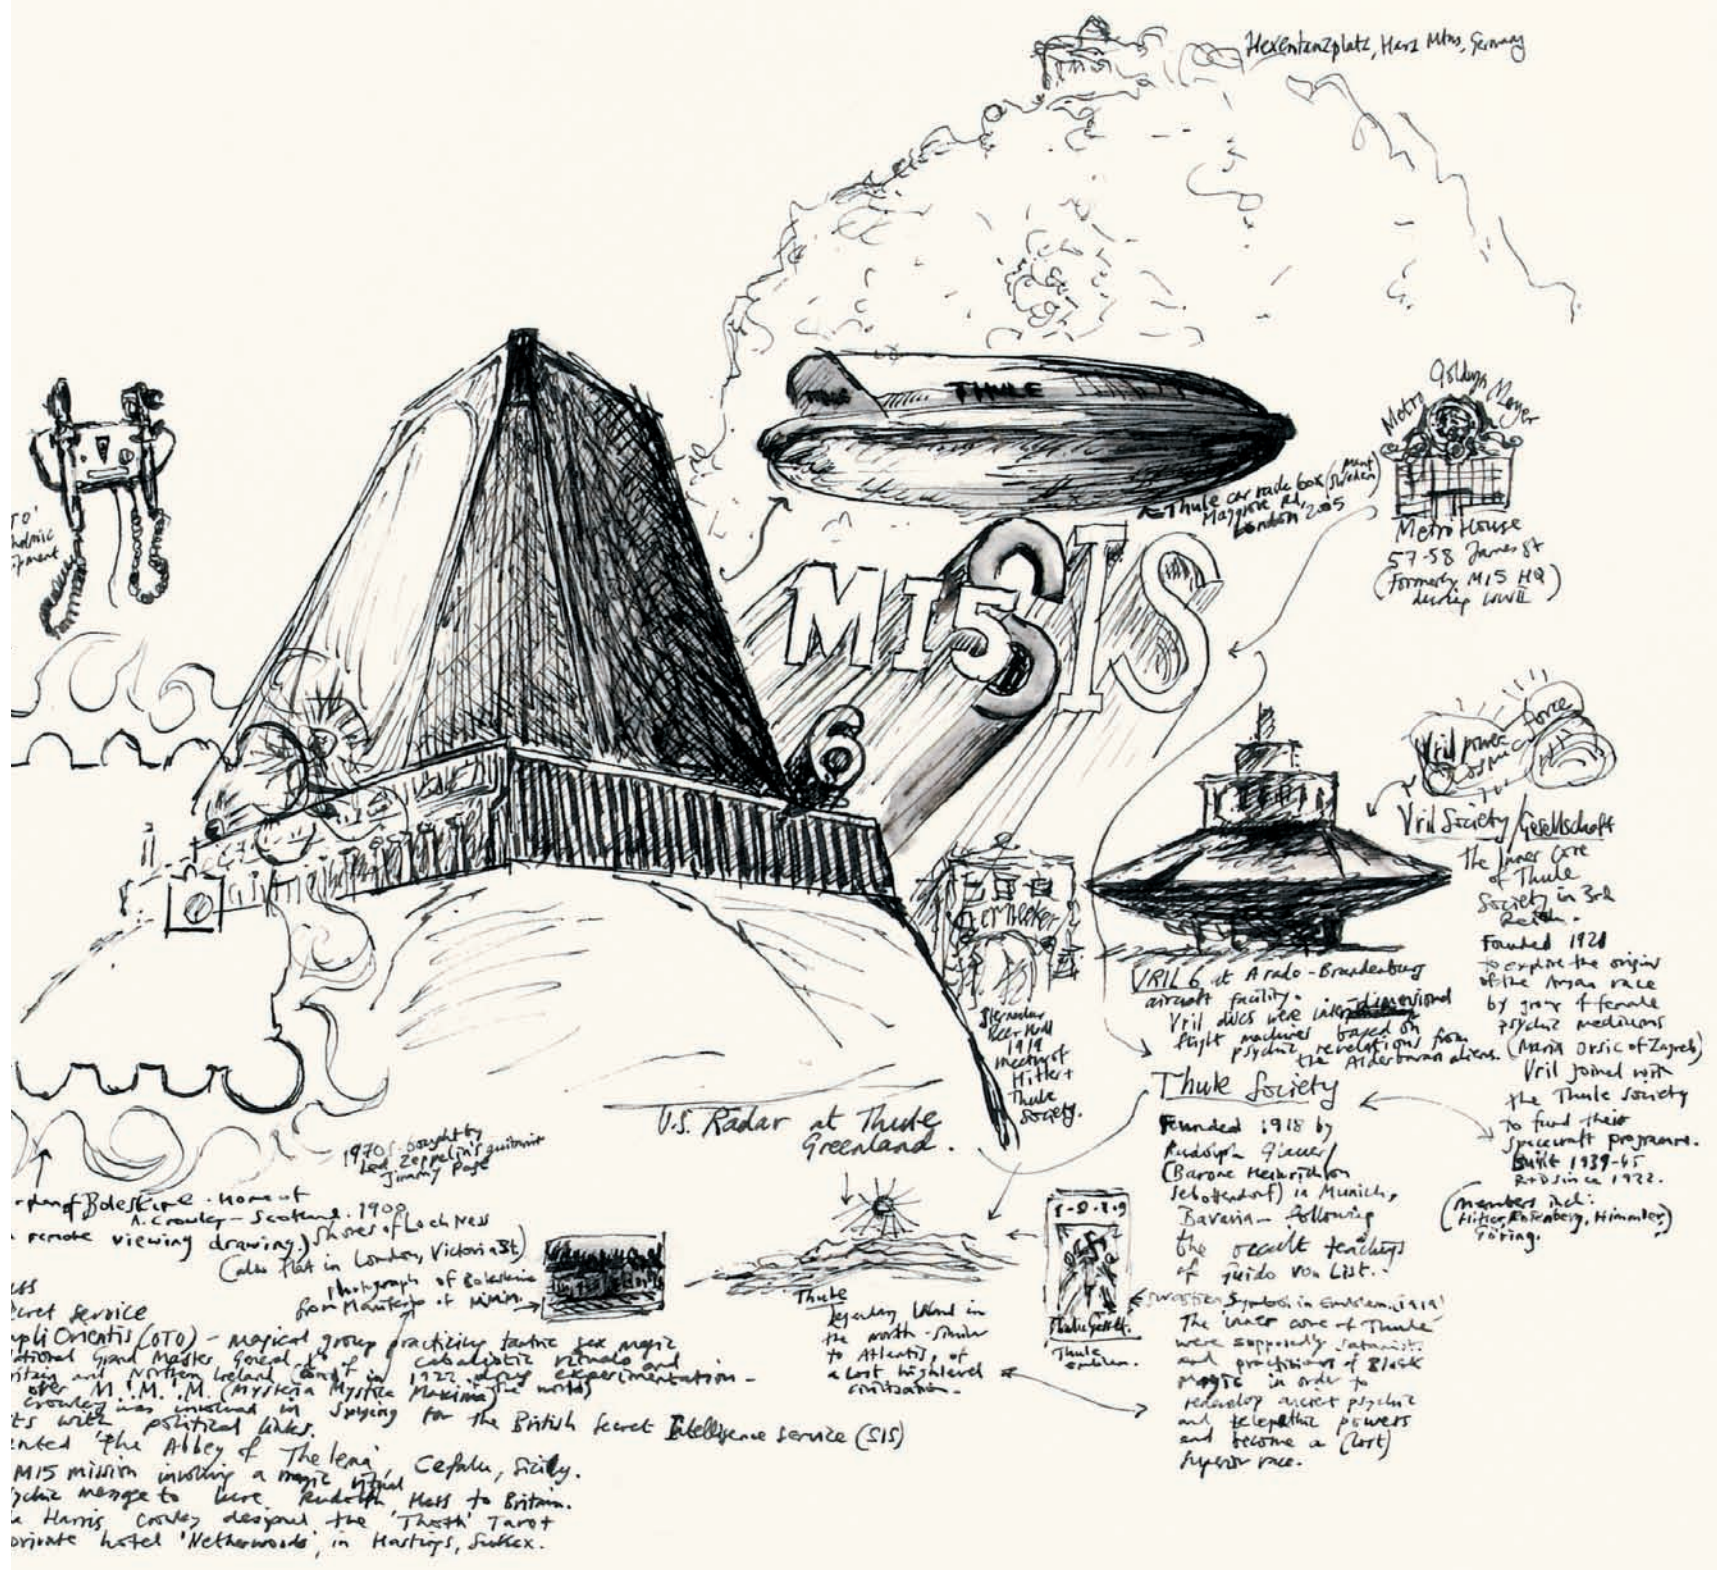 Hexentanzplatz, Harz Mtns, Germany
THULE
Metro Goldwyn Mayer
Metro House
57-58 James St
(Formerly MI5 HQ
during WWII)
Thule car rack box (
Rd,
London 2005
MI5
SIS
6
Vril power
Cosmic force
Vril Society/Gesellschaft
The Inner Core
of Thule
Society in 3rd
Reich.
Founded 1921
to explore the origins
of the Aryan race
by group of female
psychic mediums
(Maria Orsic of Zagreb)
Vril joined with
the Thule Society
to fund their
spacecraft programme.
Built 1939-45
R+D since 1922.
(Members incl:
Hitler, Rosenberg, Himmler,
Göring.)
VRIL 6 at Arado-Brandenburg
aircraft facility.
Vril discs were interdimensional
flight machines based on
psychic revelations from
the Alderbaran aliens.
Beer Hall
1919
meeting of
Hitler +
Thule
Society.
Thule Society
Founded 1918 by
Rudolph Glauer/
(Barone Heinrich von
Sebottendorf) in Munich,
Bavaria - following
the occult teachings
of Guido von List.
Swastika Symbol in Emblem. (1919)
The inner core of Thule
were supposedly Satanists
and practitions of Black
Magic in order to
redevelop ancient psychic
and telepathic powers
and become a (lost)
superior race.
Thule
emblem.
U.S. Radar at Thule
Greenland.
Thule
legendary Island in
the north - similar
to Atlantis, of
a lost high level
civilization.
1970s - bought by
Led Zeppelin's guitarist
Jimmy Page
plan of Boleskine - home of
A. Crowley - Scotland. 1900
remote viewing drawing.) Shores of Loch Ness
(also flat in London, Victoria St.)
photograph of Boleskine
from Manifesto of M.M.M.
ess
cret service
mpli Orientis (OTO) - magical group practicing tantric sex magic
ational Grand Master General of cabalistic rituals and
ritain and Northern Ireland in 1922 drug experimentation -
over M.'M.'.M. (Mysteria Mystica Maxima)
Crowley was involved in spying for the British Secret Intelligence Service (SIS)
ts with political links.
ented 'The Abbey of Thelema', Cefalu, Sicily.
MI5 mission involving a magic ritual
ychic message to lure Rudolph Hess to Britain.
a Harris Crowley designed the 'Thoth' Tarot
private hotel 'Netherwoods', in Hastings, Sussex.